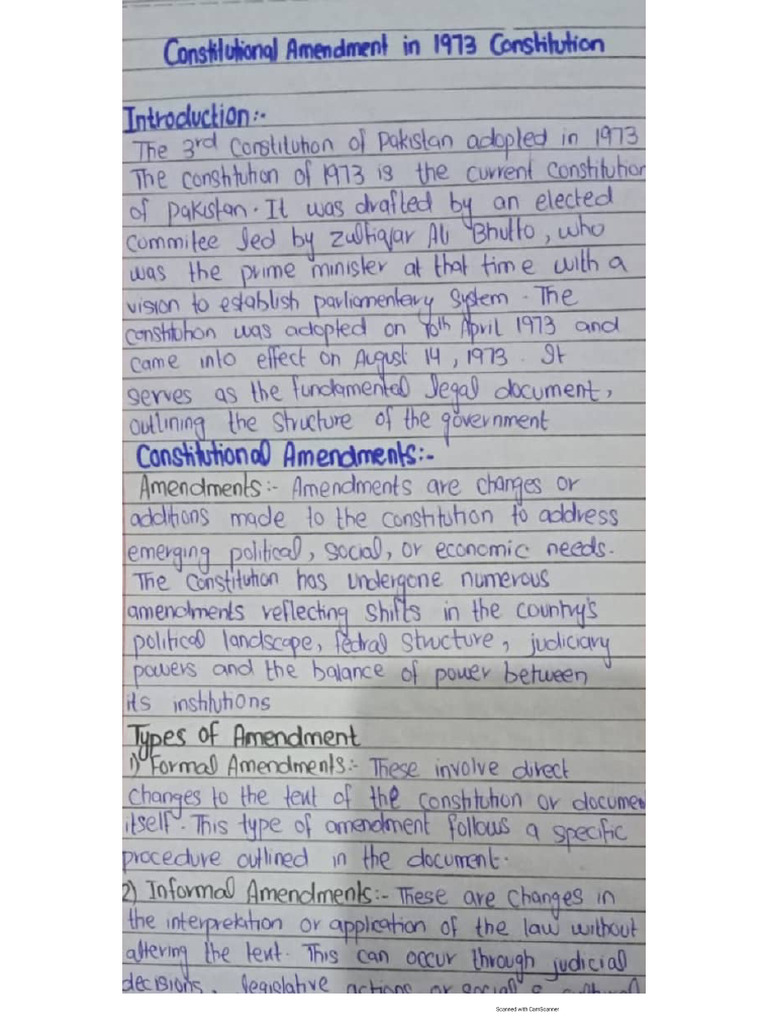 Constitutional Amendment in 1973 Constitution
Introduction:-
The 3rd Constitution of Pakistan adopted in 1973
The constitution of 1973 is the current constitution
of Pakistan. It was drafted by an elected
commitee led by Zulfiqar Ali Bhutto, who
was the prime minister at that time with a
vision to establish parliamentary system. The
constitution was adopted on 10th April 1973 and
came into effect on August 14, 1973. It
serves as the fundamental legal document,
outlining the structure of the government
Constitutional Amendments:-
Amendments:- Amendments are changes or
additions made to the constitution to address
emerging political, social, or economic needs.
The Constitution has undergone numerous
amendments reflecting shifts in the country's
political landscape, fedral structure, judiciary
powers and the balance of power between
its institutions
Types of Amendment
1) Formal Amendments:- These involve direct
changes to the text of the constitution or documen
itself. This type of amendment follows a specific
procedure outlined in the document.
2) Informal Amendments:- These are changes in
the interpretation or application of the law without
altering the text. This can occur through judicial
decisions, legislative actions or social
Scanned with CamScanner